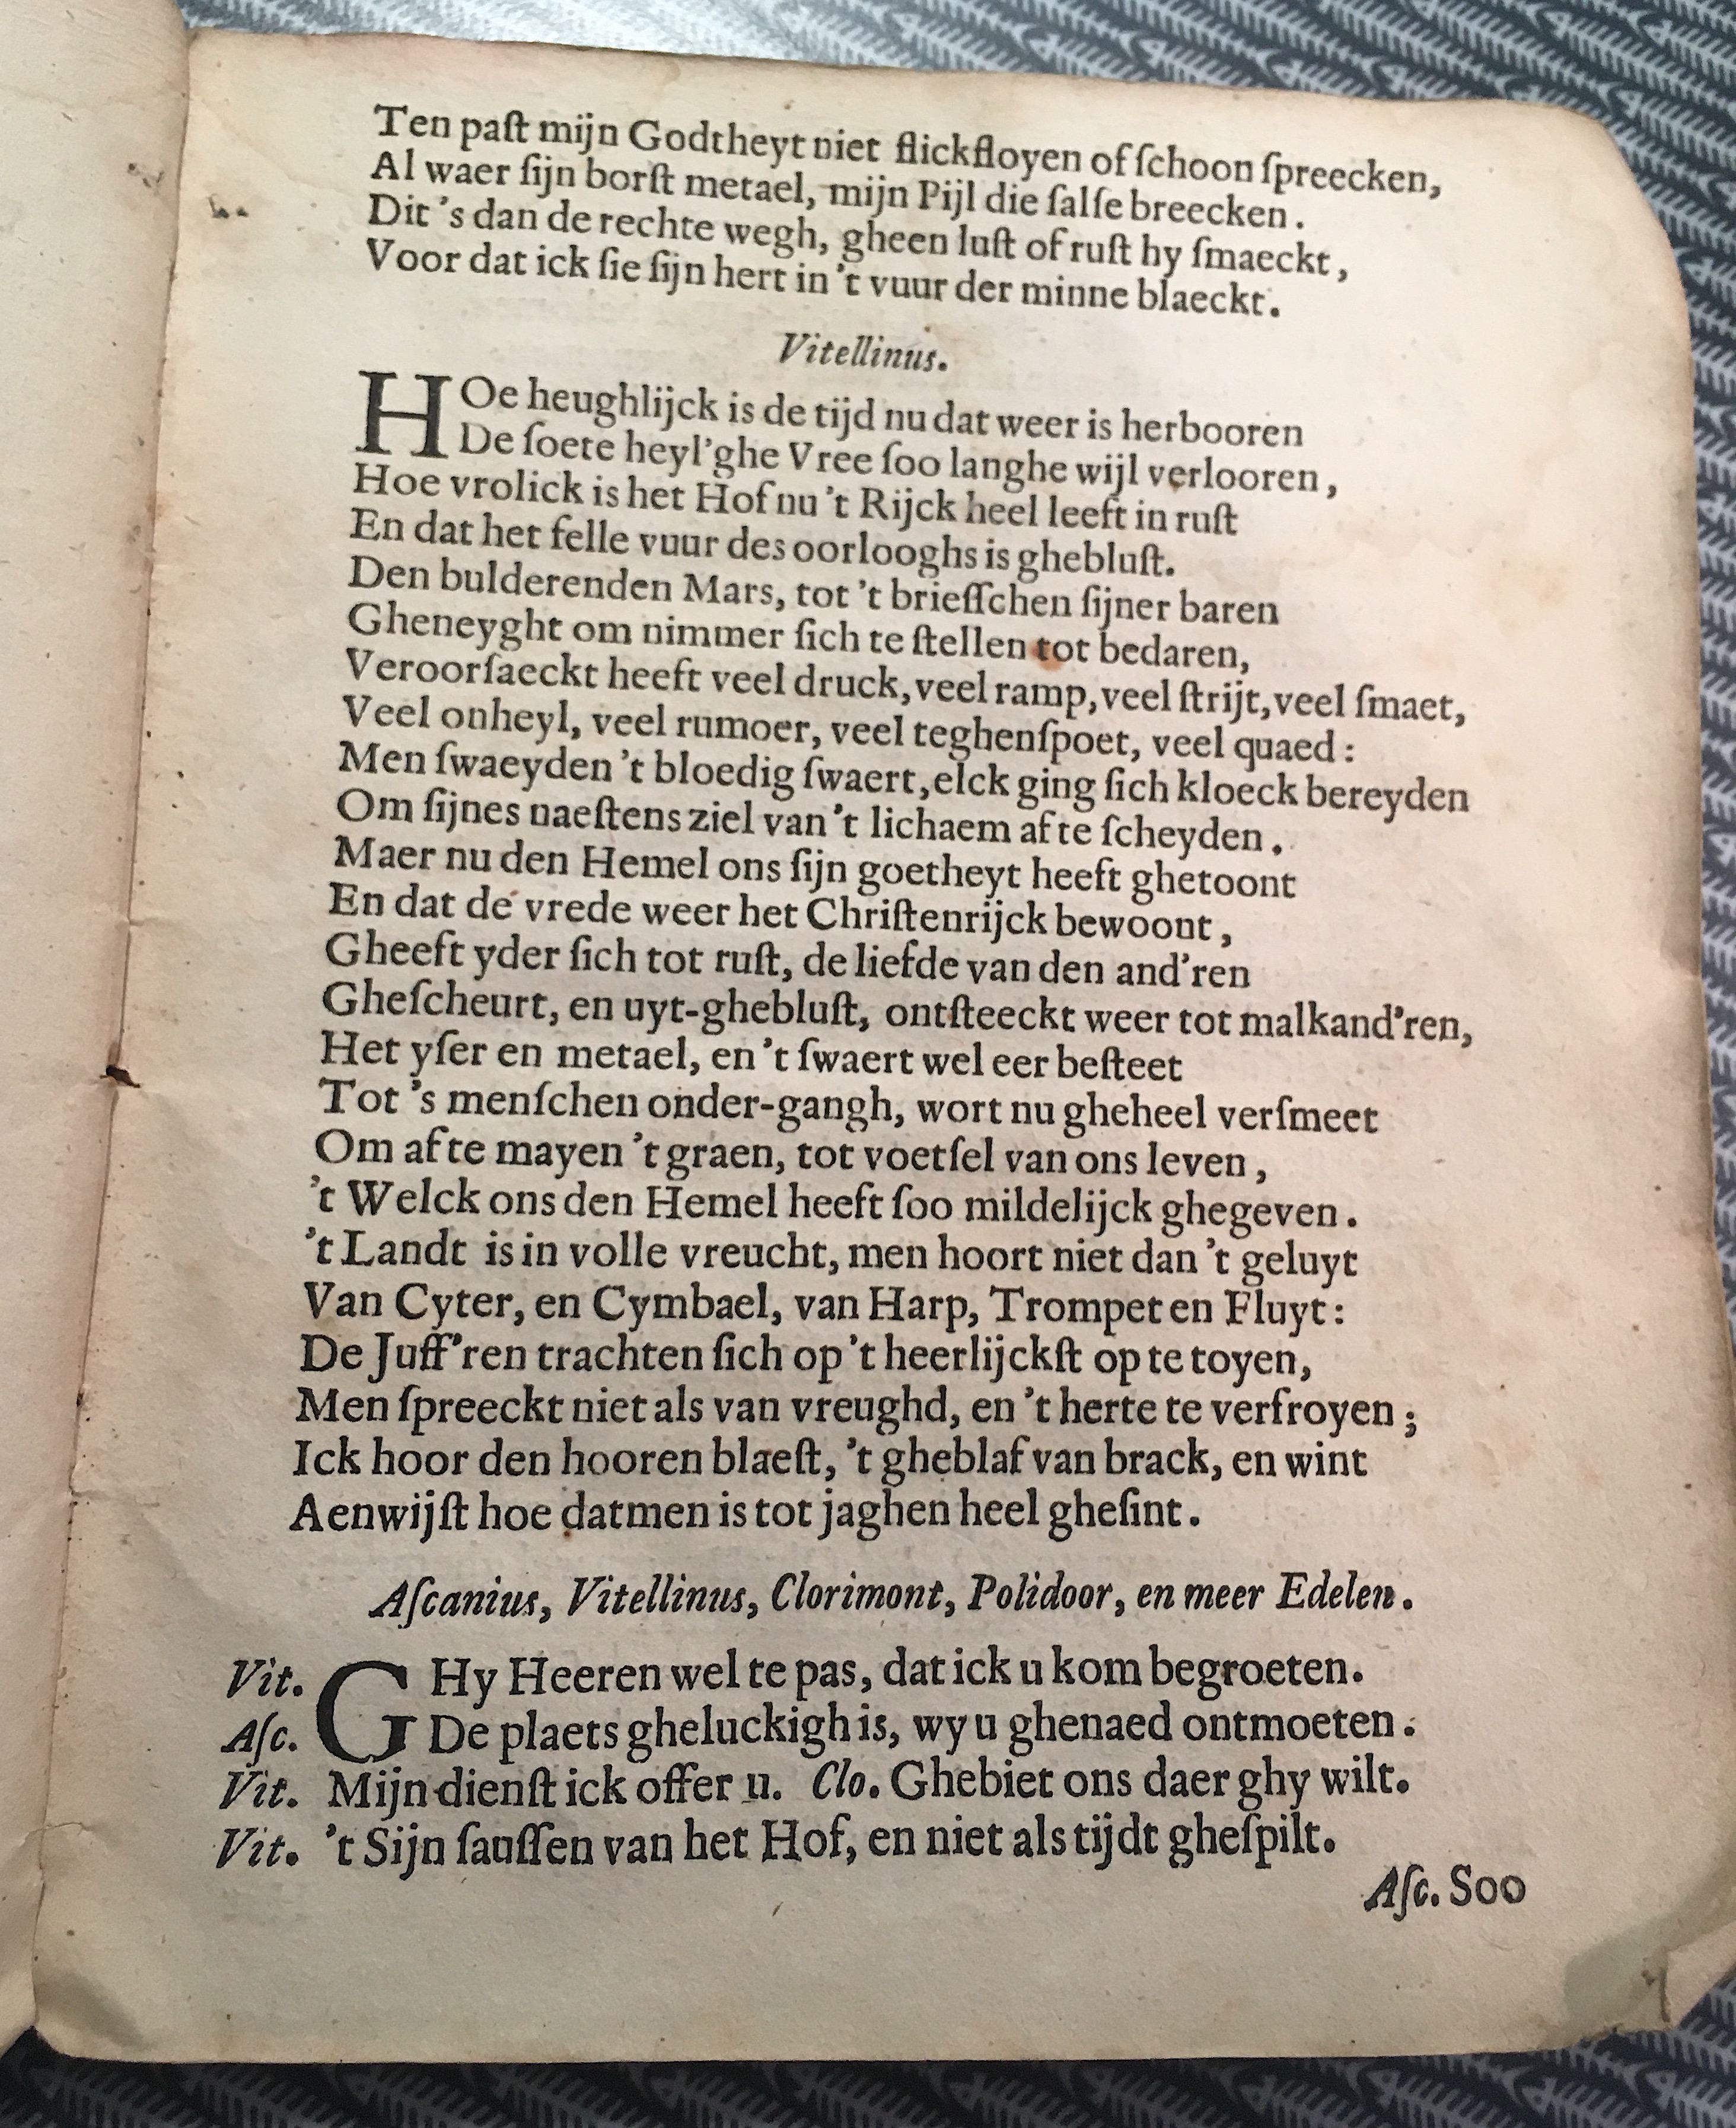 Ten paſt mijn Godtheyt niet flickfloyen of ſchoon ſpreecken,
Al waer ſijn borſt metael, mijn Pijl die ſalſe breecken.
Dit 's dan de rechte wegh, gheen luſt of ruſt hy ſmaeckt,
Voor dat ick ſie ſijn hert in 't vuur der minne blaeckt.
Vitellinus.
HOe heughlijck is de tijd nu dat weer is herbooren
De ſoete heyl'ghe Vree ſoo langhe wijl verlooren,
Hoe vrolick is het Hof nu 't Rijck heel leeft in ruſt
En dat het felle vuur des oorlooghs is ghebluſt.
Den bulderenden Mars, tot 't brieſſchen ſijner baren
Gheneyght om nimmer ſich te ſtellen tot bedaren,
Veroorſaeckt heeft veel druck, veel ramp, veel ſtrijt, veel ſmaet,
Veel onheyl, veel rumoer, veel teghenſpoet, veel quaed:
Men ſwaeyden 't bloedig ſwaert, elck ging ſich kloeck bereyden
Om ſijnes naeſtens ziel van 't lichaem af te ſcheyden.
Maer nu den Hemel ons ſijn goetheyt heeft ghetoont
En dat de vrede weer het Chriſtenrijck bewoont,
Gheeft yder ſich tot ruſt, de liefde van den and'ren
Gheſcheurt, en uyt-ghebluſt, ontſteeckt weer tot malkand'ren,
Het yſer en metael, en 't ſwaert wel eer beſteet
Tot 's menſchen onder-gangh, wort nu gheheel verſmeet
Om af te mayen 't graen, tot voetſel van ons leven,
't Welck ons den Hemel heeft ſoo mildelijck ghegeven.
't Landt is in volle vreucht, men hoort niet dan 't geluyt
Van Cyter, en Cymbael, van Harp, Trompet en Fluyt:
De Juff'ren trachten ſich op 't heerlijckſt op te toyen,
Men ſpreeckt niet als van vreughd, en 't herte te verfroyen;
Ick hoor den hooren blaeſt, 't gheblaf van brack, en wint
Aenwijſt hoe datmen is tot jaghen heel gheſint.
Aſcanius, Vitellinus, Clorimont, Polidoor, en meer Edelen.
Vit. GHy Heeren wel te pas, dat ick u kom begroeten.
Aſc. De plaets gheluckigh is, wy u ghenaed ontmoeten.
Vit. Mijn dienſt ick offer u. Clo. Ghebiet ons daer ghy wilt.
Vit. 't Sijn ſauſſen van het Hof, en niet als tijdt gheſpilt.
Aſc. Soo